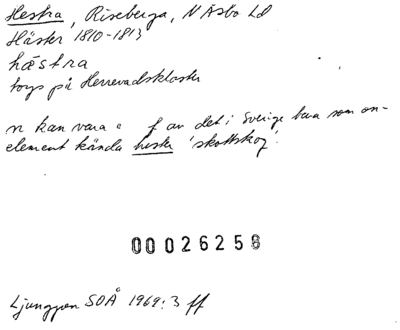 Hestra, Riseberga, N Åsbo hd
Häster 1810-1813
hästra
torp på Herrevadskloster
n kan vara f av det i Sverige bara som on-
element kända hester 'skottskog'.
00026258
Ljunggren SOÅ 1969:3 ff